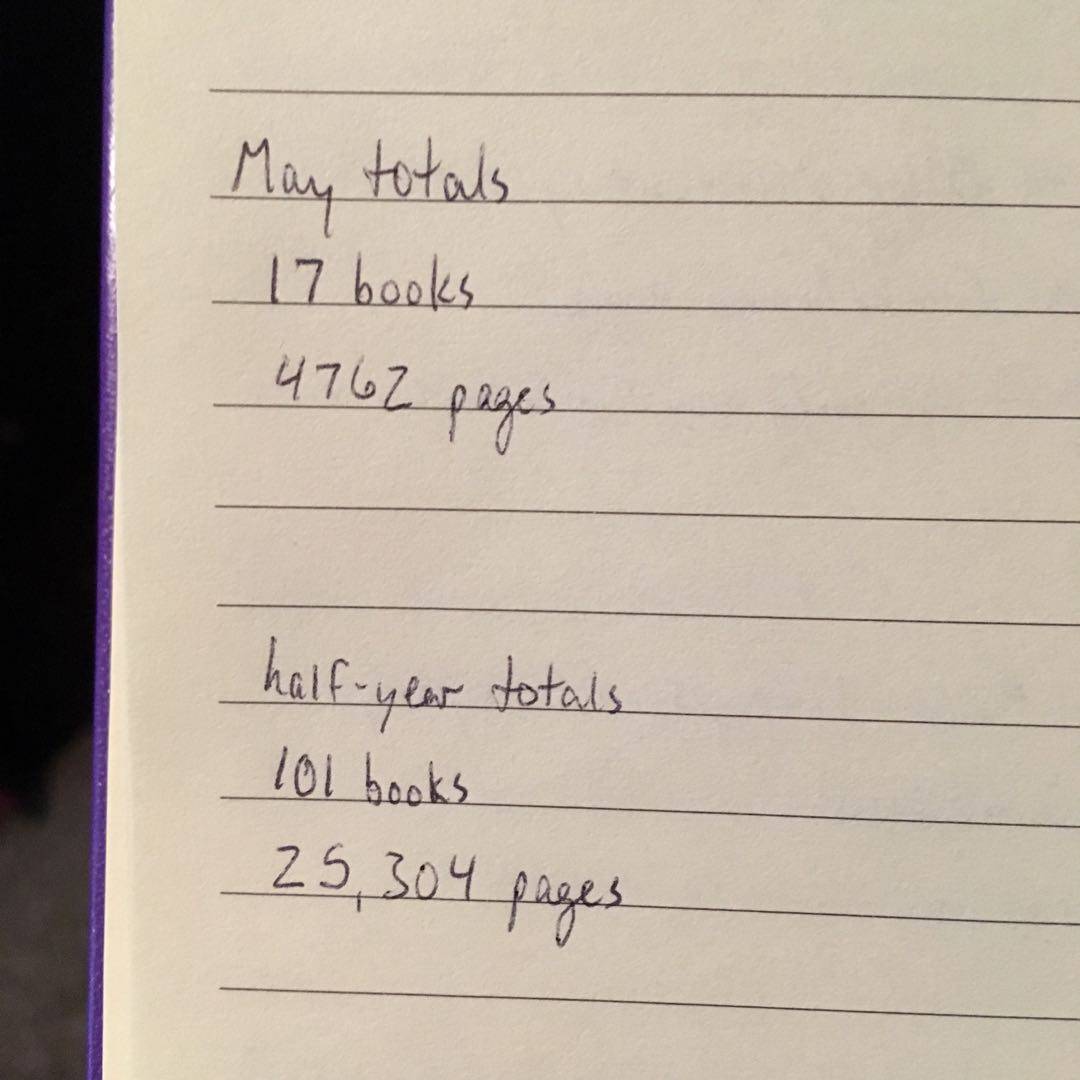 May totals
17 books
4762 pages
half-year totals
101 books
25,304 pages